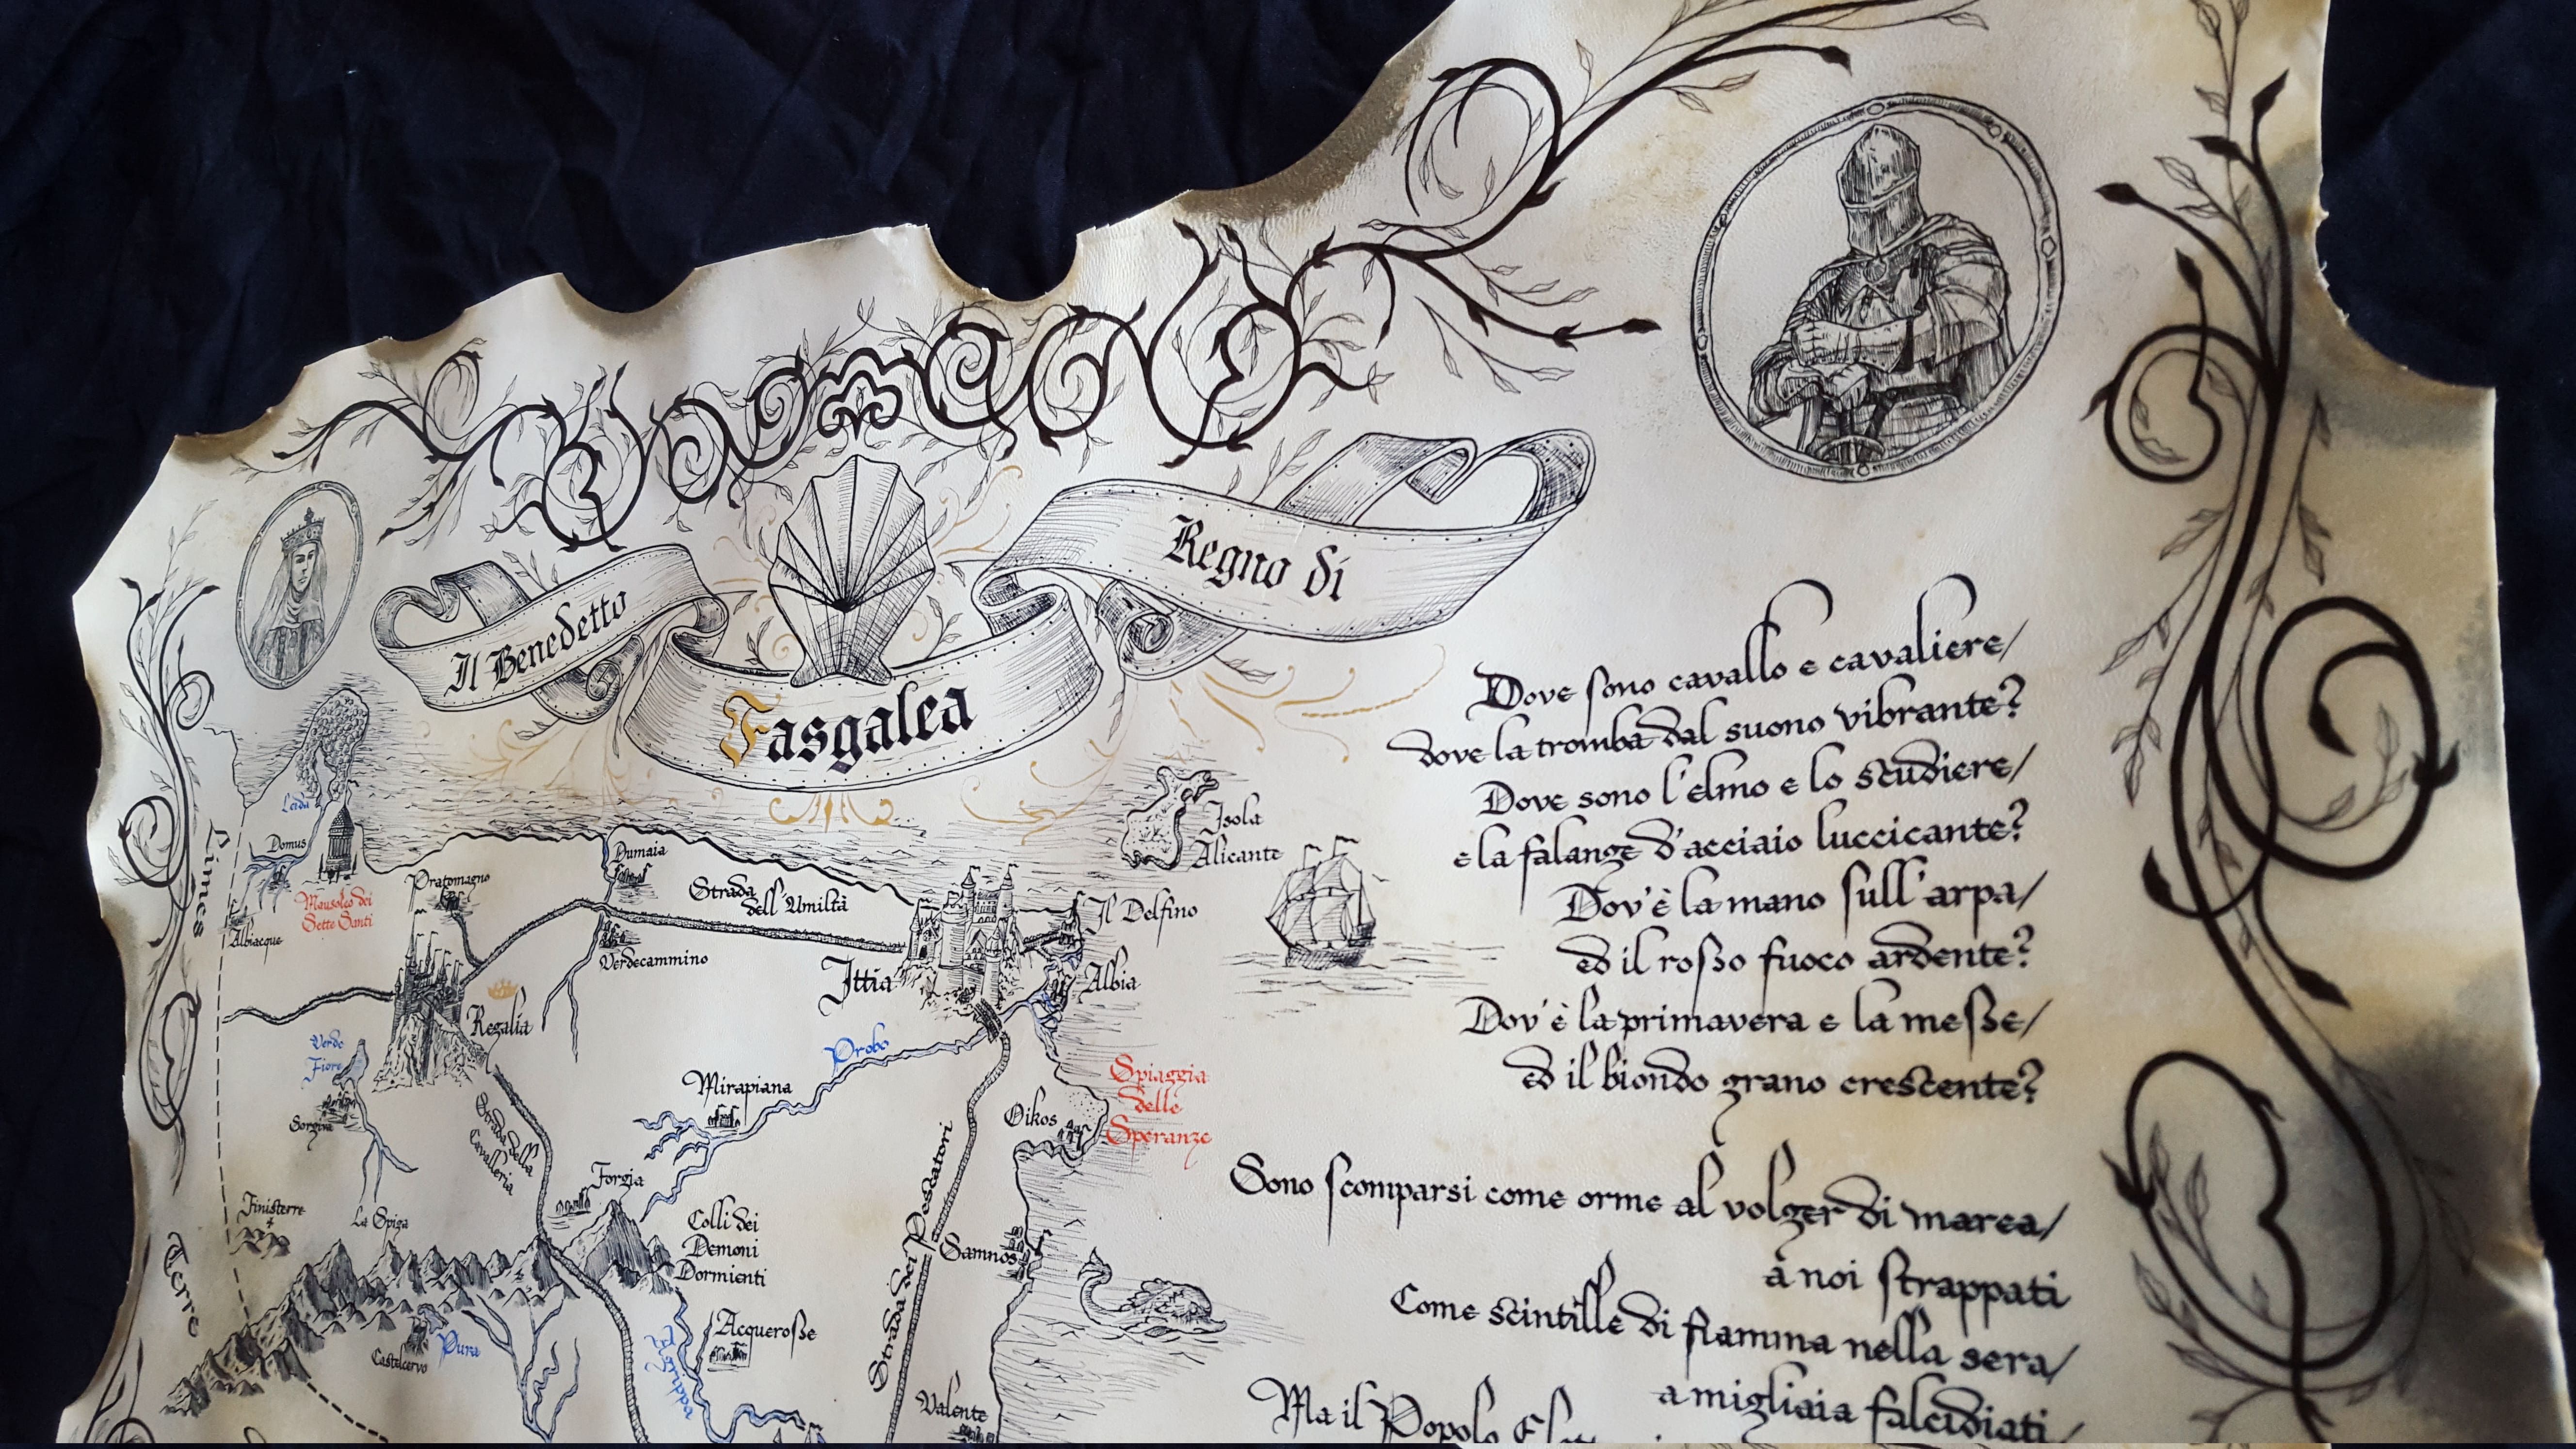 Il Benedetto
Regno di
Fasgalea
Leida
Domus
Limes
Mausoleo dei
Sette Santi
Albiacque
Pratomagno
Dumaia
Strada
dell'Umiltà
Verdecammino
Isola
Alicante
Il Delfino
Ittia
Albia
Regalia
Verde
Fiore
Sorgiva
Probo
Mirapiana
Strada della
Cavalleria
Spiaggia
delle
Speranze
Oikos
Strada dei Pescatori
Forgia
Finisterre
La Spiga
Colli dei
Demoni
Dormienti
Samnos
Terre
Castelcervo
Pura
Acquerosse
Agrippa
Valente
Dove sono cavallo e cavaliere/
dove la tromba dal suono vibrante?
Dove sono l'elmo e lo scudiere/
e la falange d'acciaio luccicante?
Dov'è la mano sull'arpa/
ed il rosso fuoco ardente?
Dov'è la primavera e la messe/
ed il biondo grano crescente?
Sono scomparsi come orme al volger di marea/
a noi strappati
Come scintille di fiamma nella sera/
a migliaia falcidiati/
Ma il Popolo